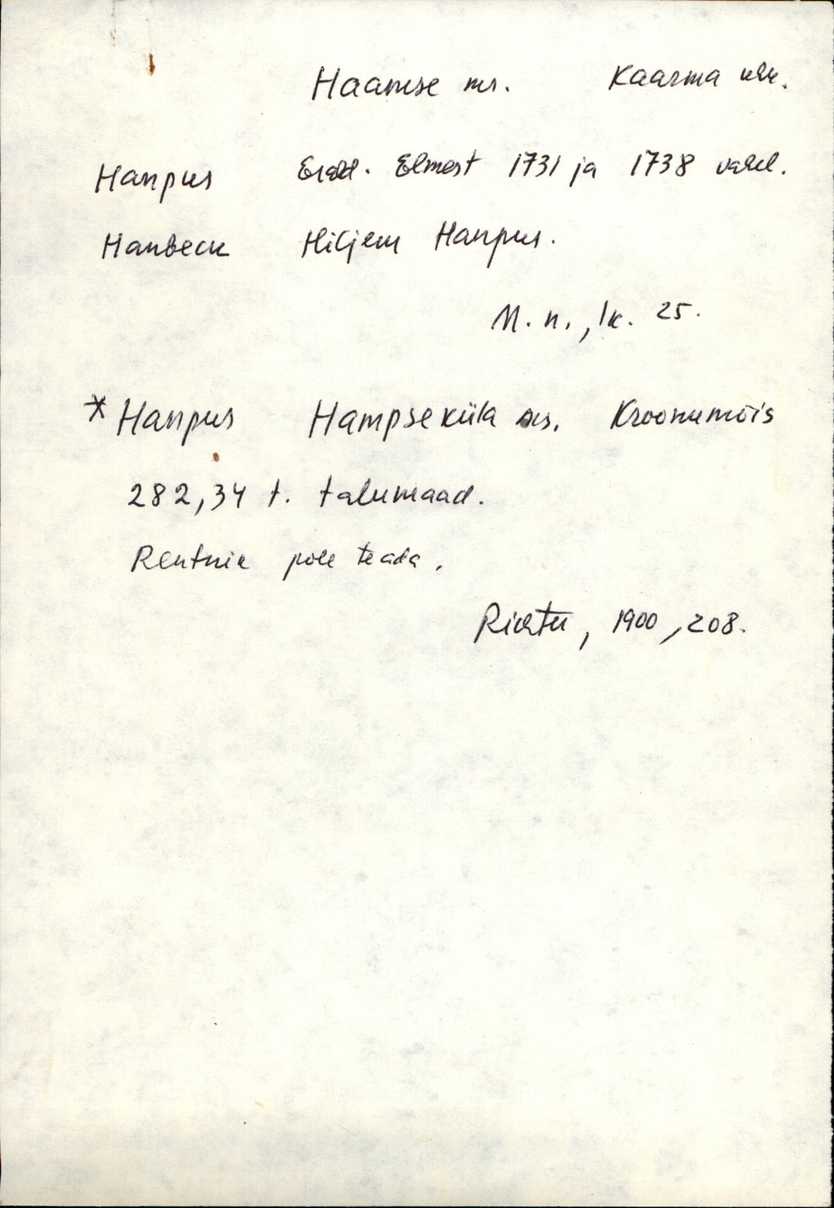 Haamse ms. Kaarma khk.
Hanpus Erald. Elmest 1731 ja 1738 vahel.
Hanbeck Hiljem Hanpus.
M. n., lk. 25.
* Hanpus Hampseküla ms. Kroonumõis
282,34 t. talumaad.
Rentnik pole teada.
Richter, 1900, 208.